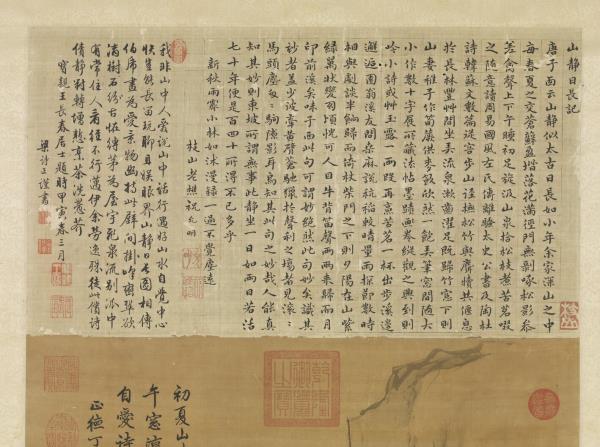 山靜日長記
唐子西云山靜似太古日長如小年余家深山之中
每春夏之交蒼蘚盈堦落花滿徑門無剝啄松影參
差禽聲上下午睡初足旋汲山泉拾松枝煮苦茗啜
之隨意讀周易國風左氏傳離騷太史公書及陶杜
詩韓蘇文數篇從容步山逕撫松竹與麛犢共偃息
於長林豐艸間坐弄流泉漱齒濯足既歸竹窓下則
山妻稚子作筍蕨供麥飯欣然一飽弄筆窓間隨大
小作數十字展所藏法帖墨蹟畫卷縱觀之興到則
吟小詩或艸玉露一兩段再烹苦茗一杯出步溪邊
邂逅園翁溪友問桑麻說秔稻較晴量雨探節數時
相與劇談半餉歸而倚杖柴門之下則夕陽在山紫
綠萬狀變頃恍可人目牛背笛聲兩兩來歸而月
印前溪矣味子西此句可謂妙絕然此句妙矣識其
妙者蓋少彼牽黃臂蒼馳獵於聲利之場者見滾〻
馬頭塵匆〻駒隙影耳烏知此句之妙哉人能真
知其妙則東坡所謂無事此靜坐一日如兩日若活
七十年便是百四十所得不已多乎
新秋雨霽小林如沐漫錄一過不覺塵遠
枝山老樵祝允明
我非山中人愛說山中話行遇好山水自覺中心
快豈能長留玩聊且娛眼界山靜日長圖相傳
伯席畫為愛景物幽特出群間掛峰翠欲
滴樹石紛古怪縛茅為屋宇飛泉洩別派中
有常住人看經不行邁伊余以償詩
債靜對轉增愁烹茶洗
寶親王長春居士題時甲寅春三月
梁詩正謹書
乾隆御覽之寶
初夏山
午窓
自愛詩
正德丁